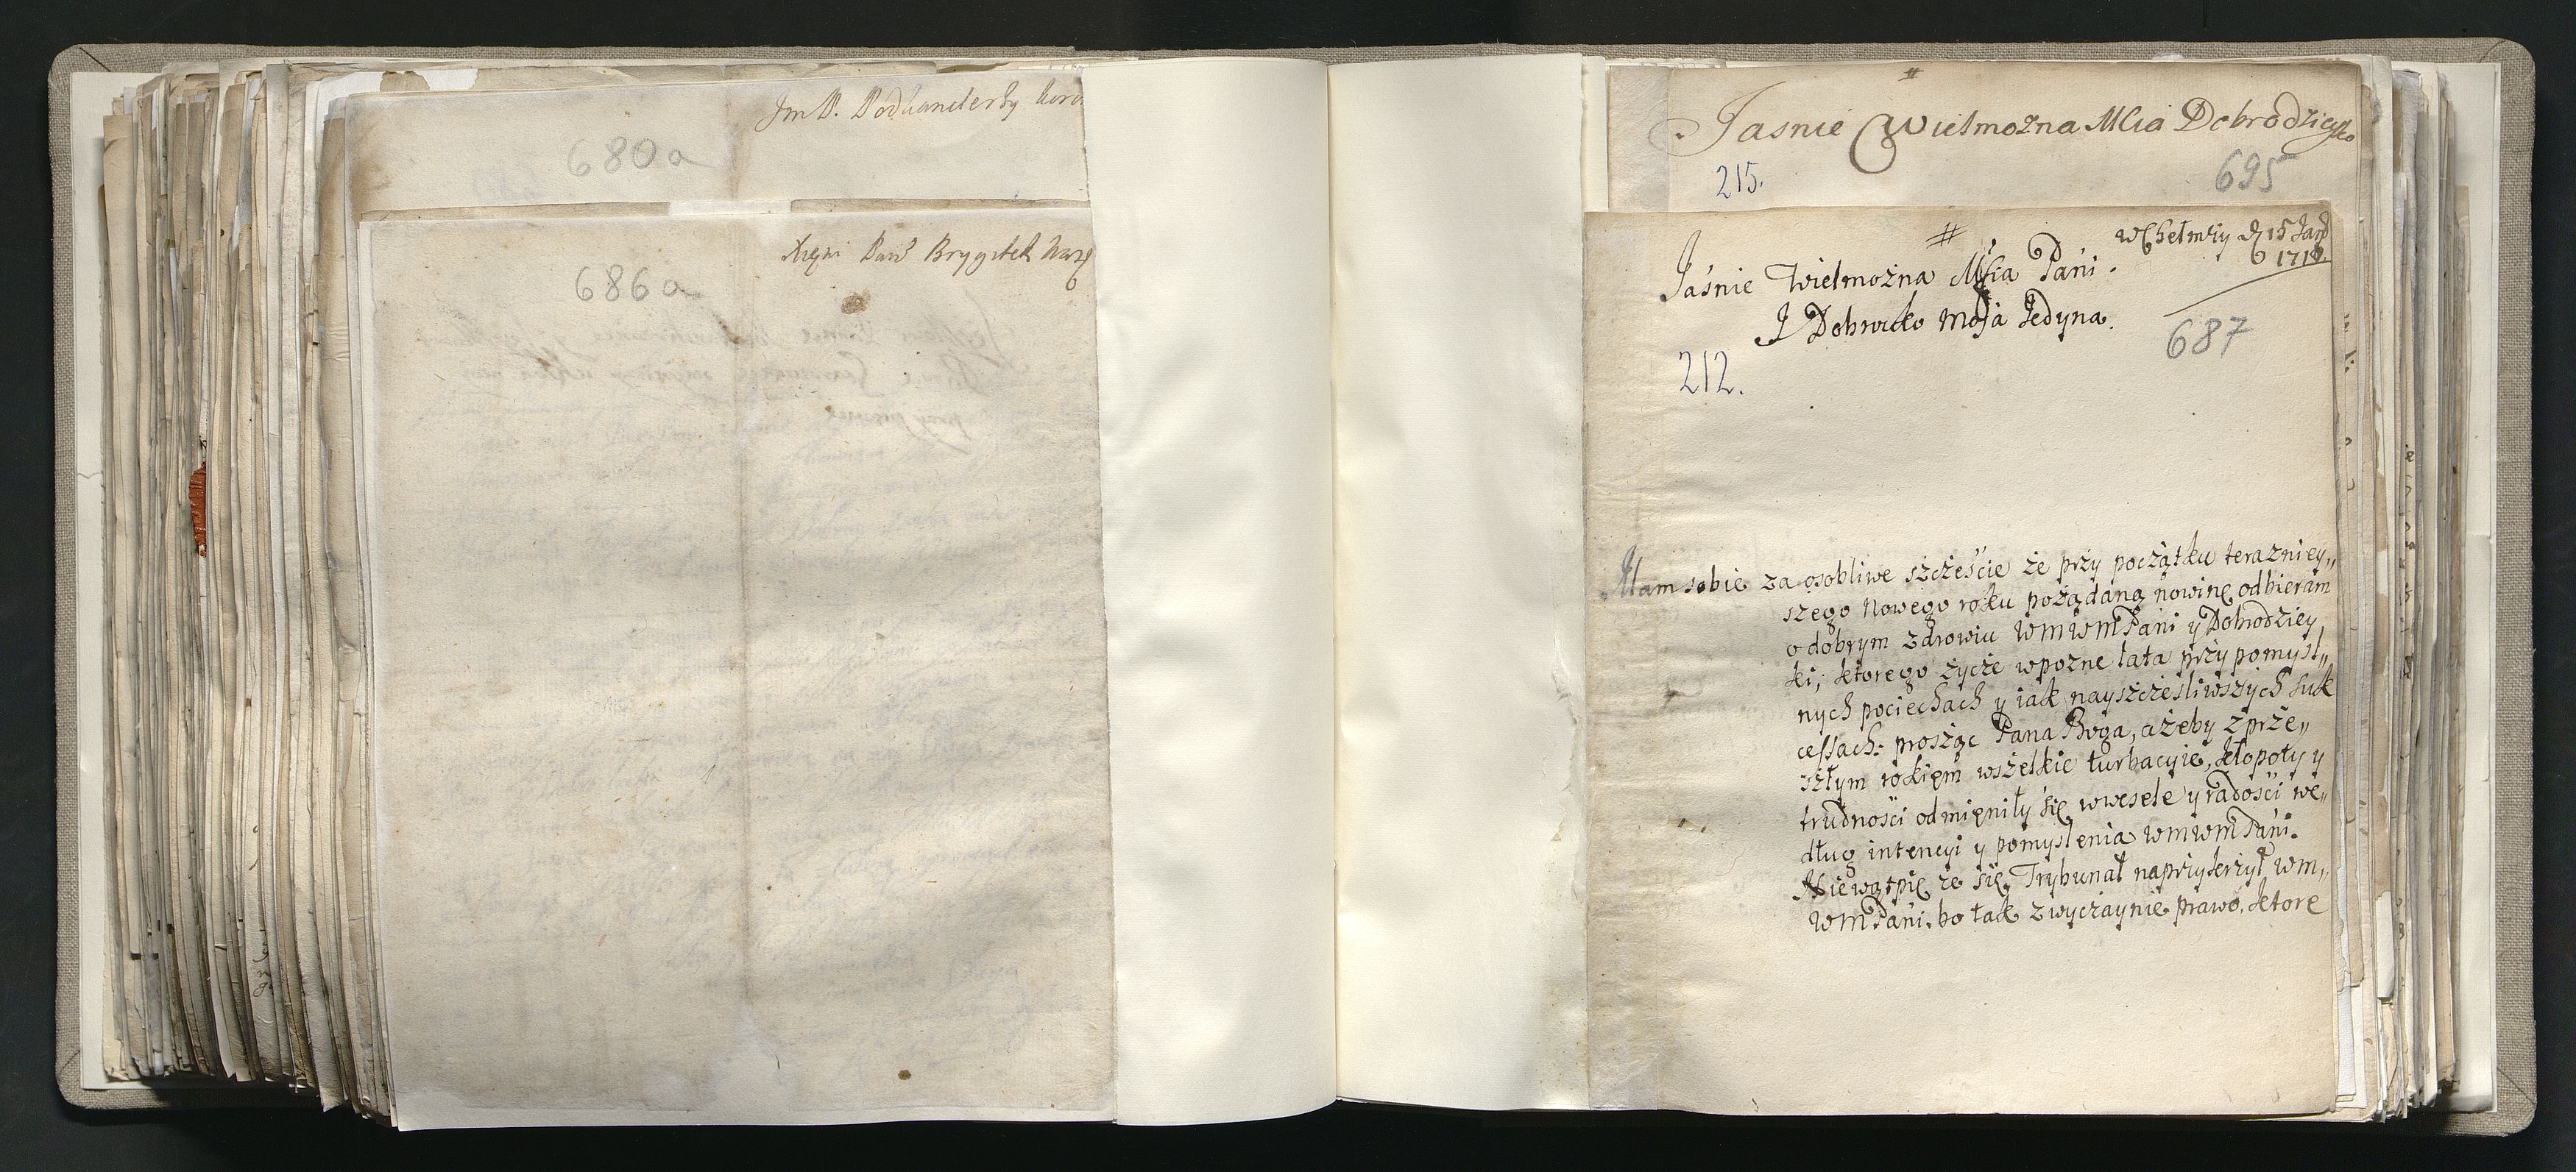 Jm P. Podkanclerzy Koro
680a
Xięni Panń Brygitek Warsz
686a
Jasnie Wielmozna MCia Dobrodzicyko
215.
695
w Chełmży d 15 Jan
1718.
Jaśnie Wielmożna Mscia Pani
I Dobrodko moja Jedyna.
687
212.
Mam sobie za osobliwe szczescie że przy początku terazniey„
szego Nowego roku pożądaną nowinę odbieram
o dobrym zdrowiu WMWMPani y Dobrodziey
ki, ktorego życzę w pozne lata przy pomysl„
nych pociechach y iak nayszczesliwszych suk
cessach: prosząc Pana Boga, ażeby z prze„
szłym rokięm wszelkie turbacyie, kłopoty y
trudnosci odmięniły się w wesele y radosci we„
dług intencyi y pomyslenia WMWMPani.
Niewątpię że się Trybunał naprzykrzył WM„
WMPani. bo tak zwyczaynie prawo, ktore